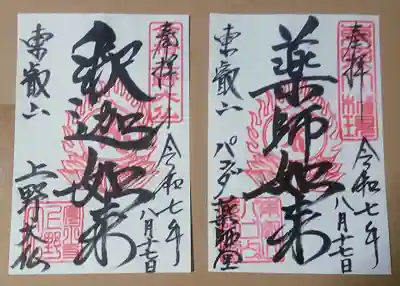 奉拝
釈迦如来
令和七年
八月十七日
東叡山
上野大仏
奉拝
薬師如来
令和七年
八月十七日
東叡山
パゴダ薬師堂